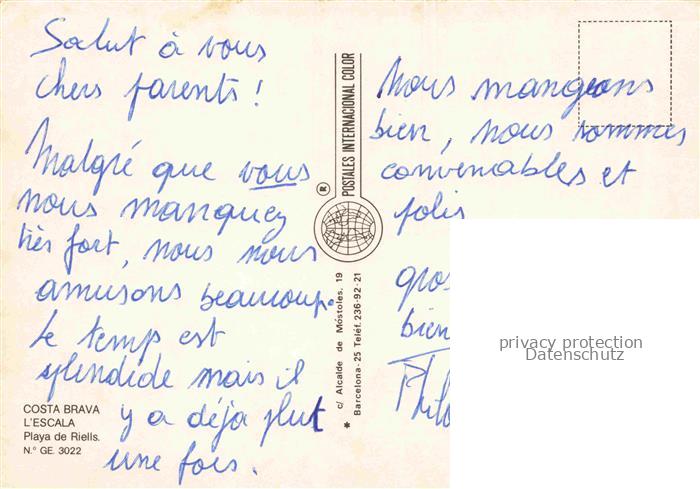 Salut à vous
chers parents !
Malgré que vous
nous manquez
très fort, nous nous
amusons beaucoup.
Le temps est
splendide mais il
y a déjà plut
une fois.
COSTA BRAVA
L'ESCALA
Playa de Riells.
N.º GE. 3022
POSTALES INTERNACIONAL COLOR
®
c/ Alcalde de Móstoles, 19
* Barcelona-25 Teléf. 236-92-21
Nous mangeons
bien, nous sommes
convenables et
polis
gros
bien
privacy protection
Datenschutz